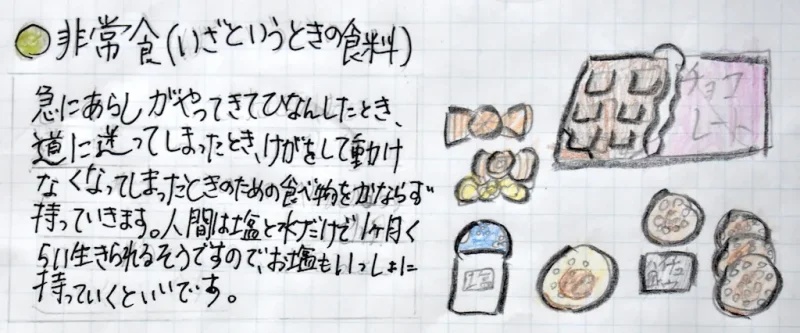 非常食(いざというときの食料)
急にあらしがやってきてひなんしたとき、
道に迷ってしまったとき、けがをして動け
なくなってしまったときのための食べ物をかならず
持っていきます。人間は塩と水だけで1ヶ月く
らい生きられるそうですので、お塩もいっしょに
持っていくといいです。
チョコ
レート
塩